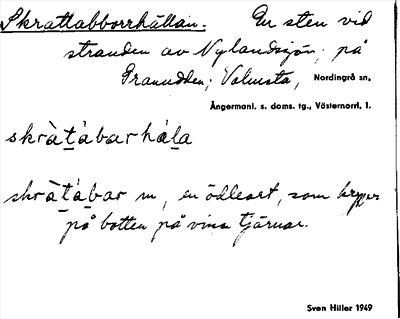 Skrattabborrhällan. En sten vid
stranden av Nylandssjön, på
Granudden; Valmsta, Nordingrå sn,
Ångermanl. s. doms. tg., Västernorrl. l.
skràt̠ábarhál̠a
skràt̠ábar m, en ödleart, som kryper
på botten på vissa tjärnar.
Sven Hiller 1949